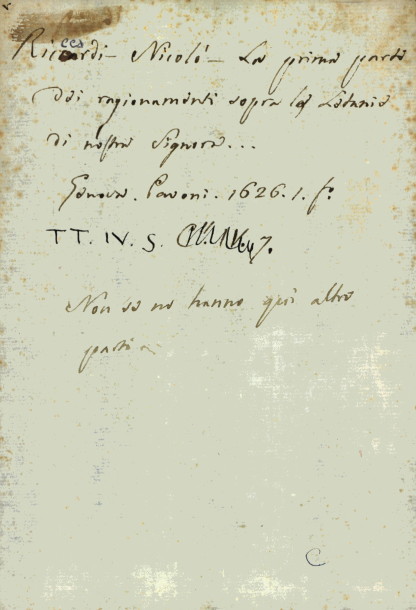 Riccardi - Nicoló - La prima parte
dei ragionamenti sopra le Letanie
di nostra Signora...
Genova. Pavoni. 1626. 1. fº.
TT. IV. S. 47.
Non se ne hanno quì altre
parti
C